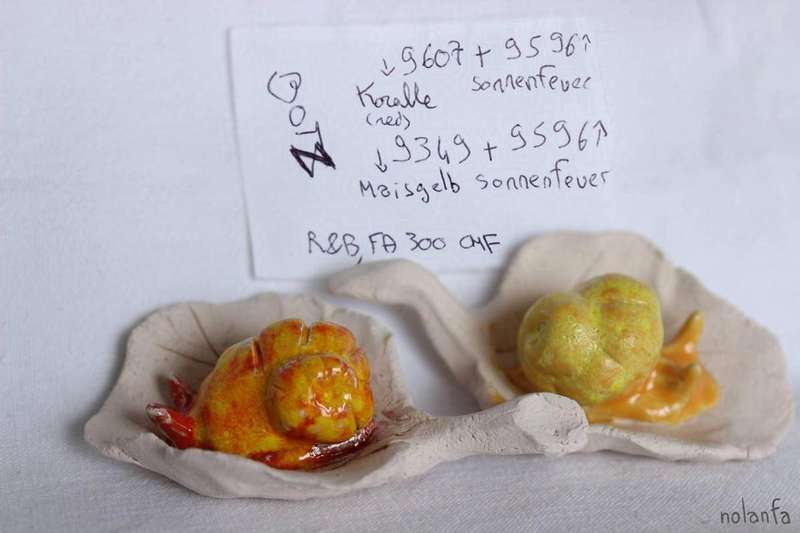 GOTZ
↓9607 + 9596↑
Koralle sonnenfeuer
(red)
↓9349 + 9596↑
Maisgelb sonnenfeuer
R&B, FA 300 CMF
nolanfa